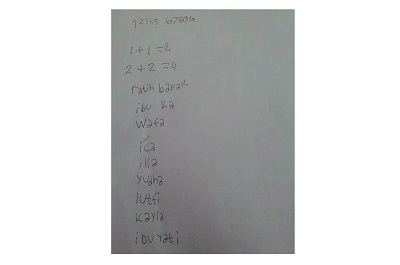 12345 678910
1+1=2
2+2=4
ratih bapak
ibu ka
wafa
ica
illa
yuaha
lutfi
kayla
ibu yati